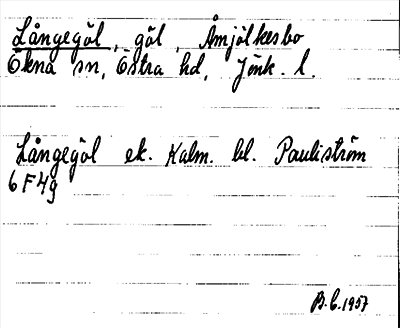 Långegöl, göl, Åmjölkesbo
Ökna sn, Östra hd, Jönk. l.
Långegöl ek. Kalm. bl. Pauliström
6F4g
B.C. 1957